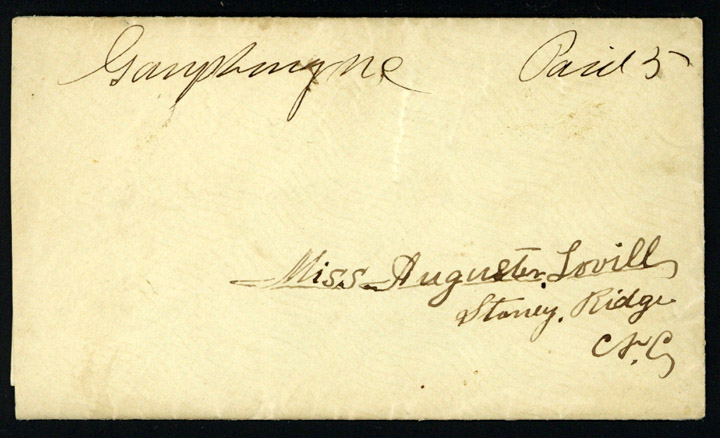 Garysburg N C Paid 5
Miss Auguster Lovill
Stoney Ridge
N.C